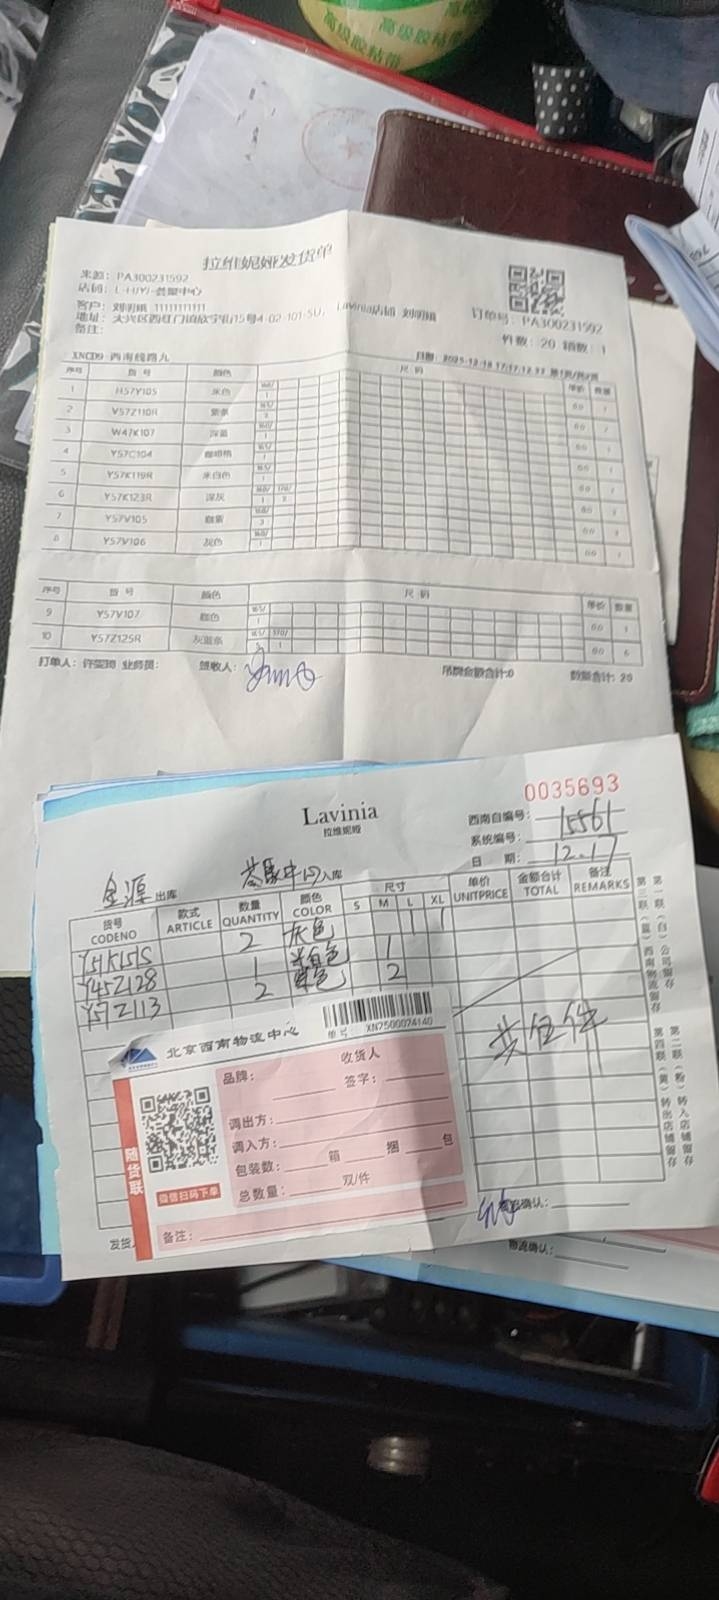 高级胶粘带
高级胶粘带
拉维妮娅发货单
来源: PA300231592
店铺: L-H(Y)-荟聚中心
订单号: PA300231592
客户: 刘明娥 11111111111
地址: 大兴区西红门镇欣宁街15号4-02-101-SU, Lavinia店铺 刘明娥
备注:
件数: 20 箱数: 1
XNCD9 西南线路九
序号 货 号 颜色 尺 码 单价 数量
1 H57Y105 米色 160/ 1 0.0 1
2 V57Z110R 165/ 2 0.0
3 W47K107 深蓝 160/ 1 0.0 1
4 Y57C104 咖啡格 165/ 1 0.0 1
5 Y57K119R 米白色 165/ 1 0.0 1
6 Y57K123R 深灰 160/ 170/ 1 2 0.0
7 Y57V105 3 0.0 3
8 Y57V106 灰色 160/ 1 0.0 1
序号 货 号 颜色 尺 码 单价 数量
9 Y57V107 165/ 1 0.0 1
10 Y57Z125R 灰蓝条 165/ 170/ 5 1 0.0 6
打单人: 业务员: 签收人: 吊牌金额合计:0 数量合计: 20
0035693
Lavinia
拉维妮娅
西南自编号: 15561
系统编号:
日 期: 12.17
金源 出库 荟聚中心 入库
货号 CODENO 款式 ARTICLE 数量 QUANTITY 颜色 COLOR 尺寸 S M L XL 单价 UNITPRICE 金额合计 TOTAL 备注 REMARKS
Y57K515 2 灰色 1 1
Y45Z128 1 米白色 1
Y57Z113 2 2
共伍件
第一联(白)公司留存
第二联(粉)转入店铺留存
第三联(蓝)西南物流留存
第四联(黄)转出店铺留存
北京西南物流中心
单号 XN7500074140
随货联
微信扫码下单
品牌: 收货人
签字:
调出方:
调入方:
包装数: 箱 捆 包
总数量: 双/件
备注:
发货
确认:
物流确认: